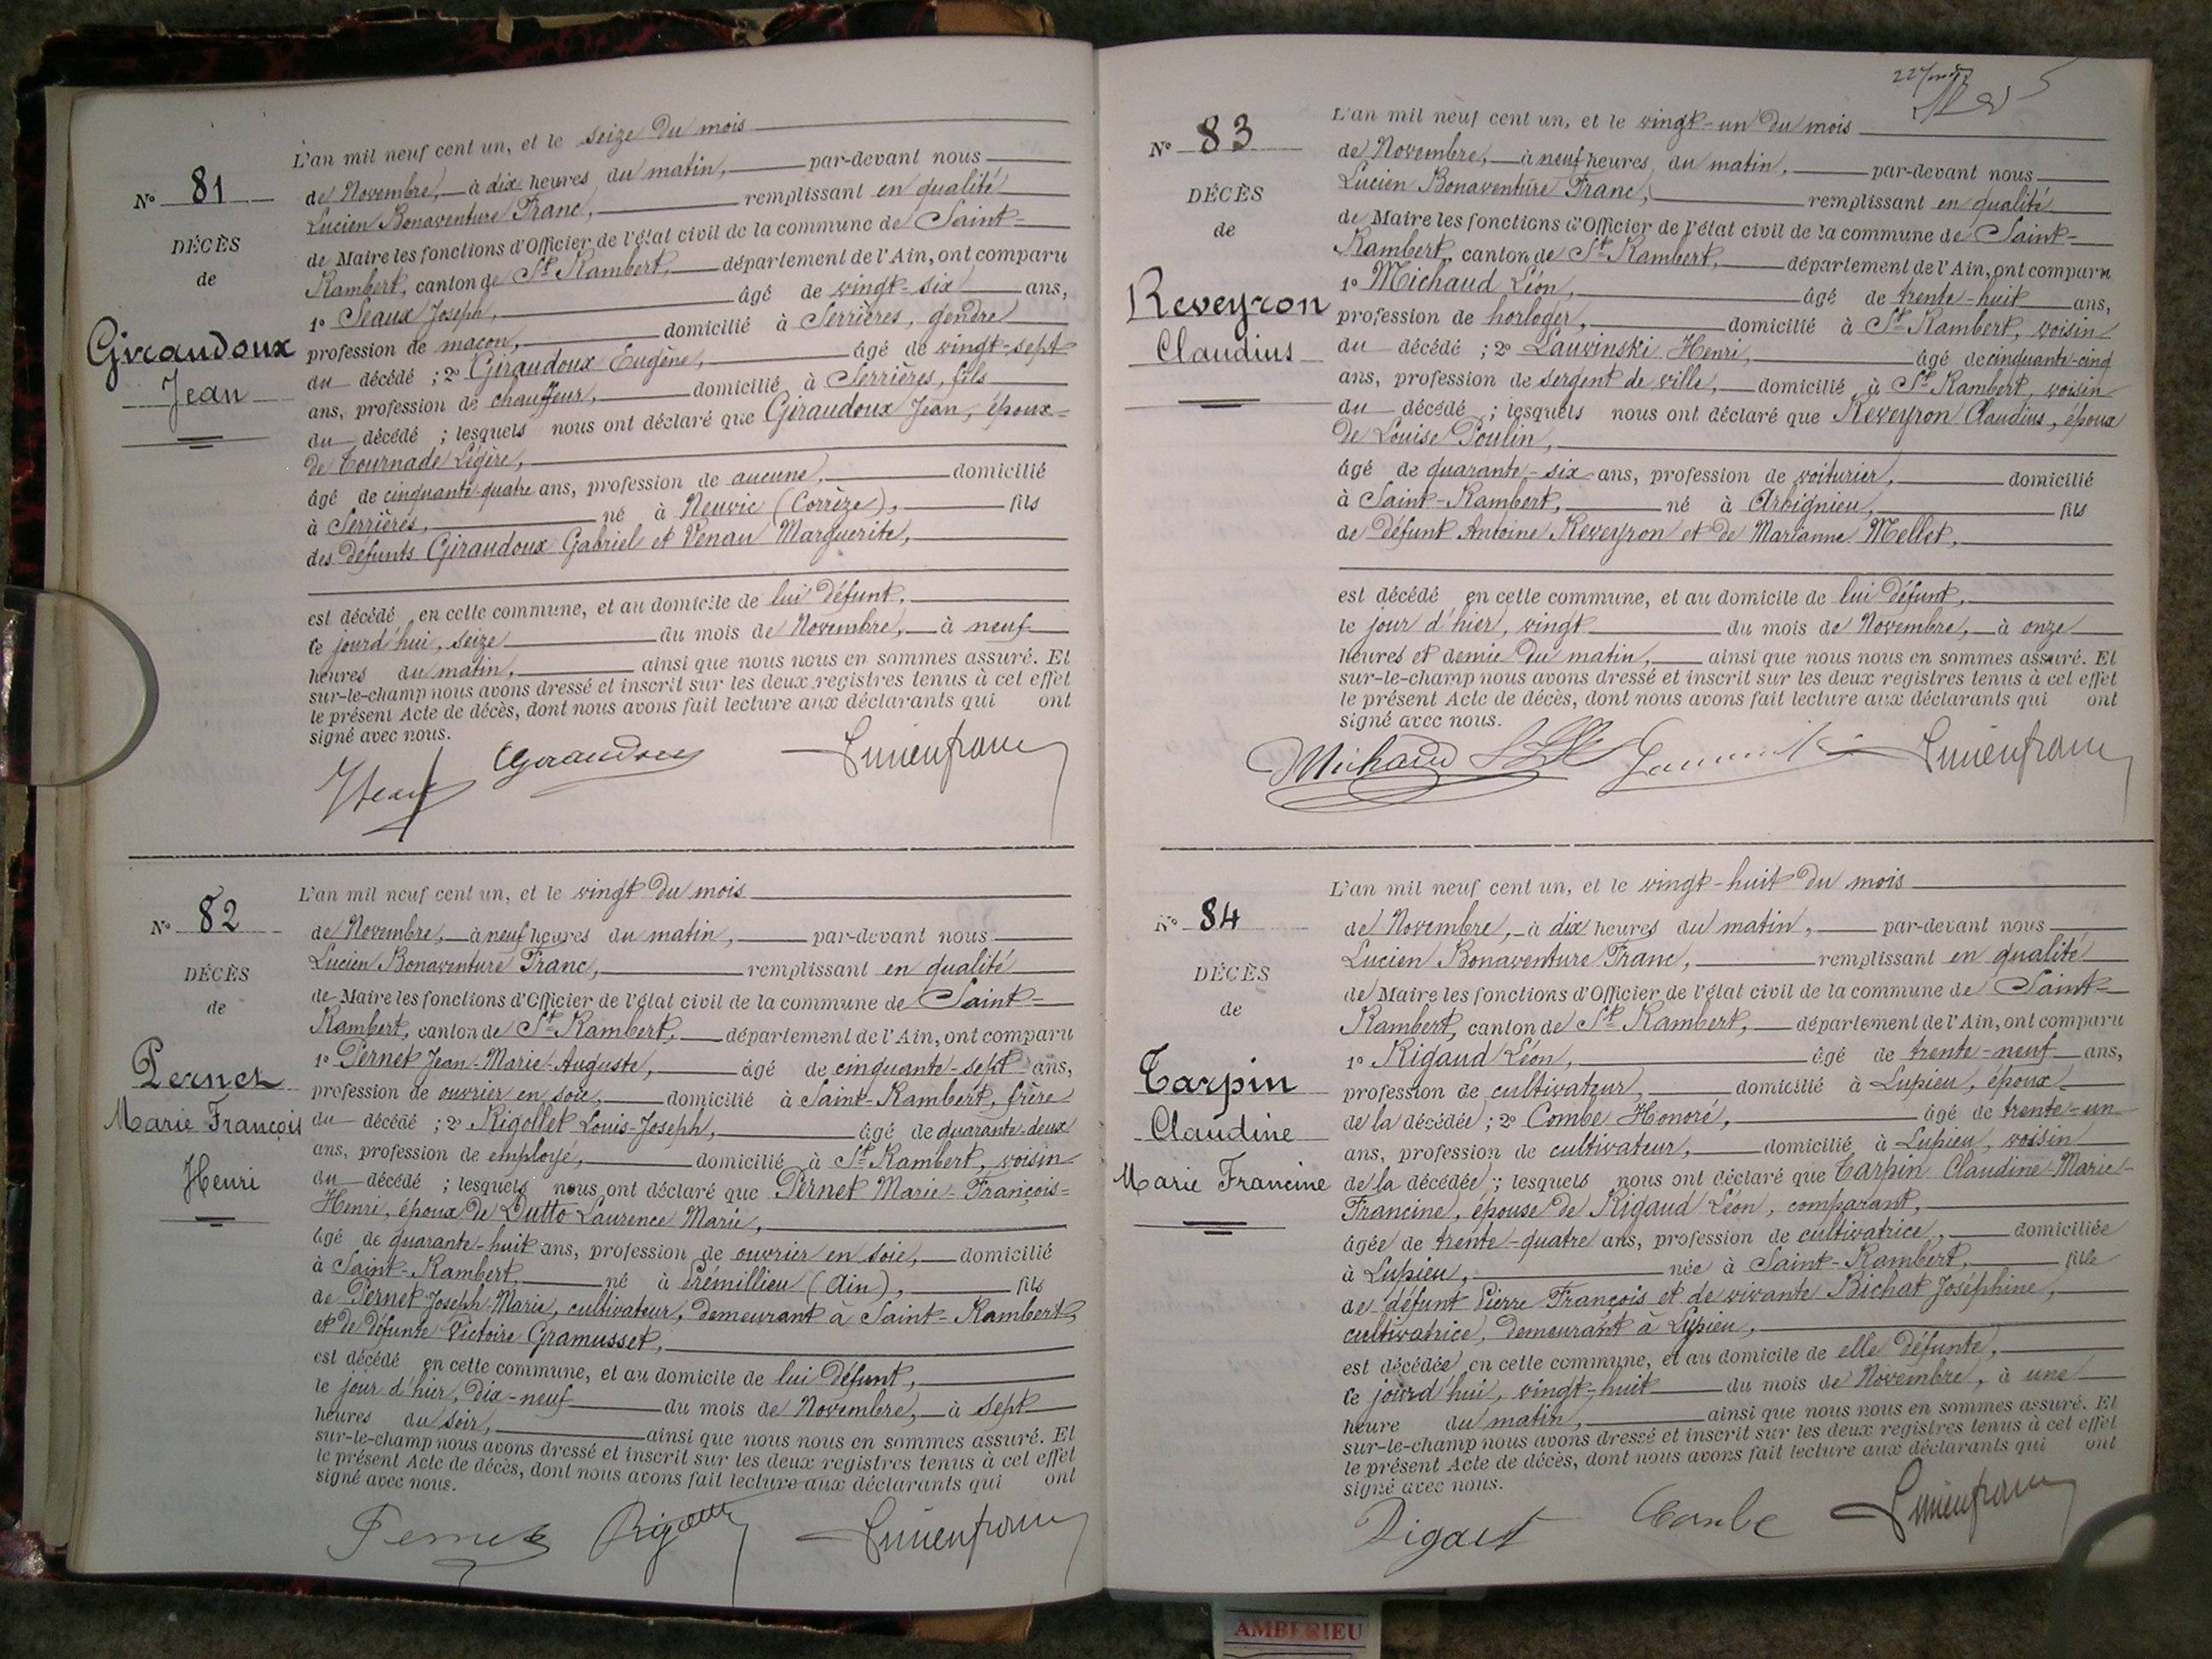 N° 81
DÉCÈS
de
Giraudoux
Jean
L'an mil neuf cent un, et le seize du mois
de Novembre, à dix heures du matin, par-devant nous
Lucien Bonaventure Franc, remplissant en qualité
de Maire les fonctions d'Officier de l'état civil de la commune de Saint-
Rambert, canton de St Rambert, département de l'Ain, ont comparu
1° Seaux Joseph, âgé de vingt-six ans,
profession de maçon, domicilié à Serrières, gendre
du décédé ; 2° Giraudoux Eugène, âgé de vingt-sept
ans, profession de chauffeur, domicilié à Serrières, fils
du décédé ; lesquels nous ont déclaré que Giraudoux Jean, époux
de Tournade Légère,
âgé de cinquante-quatre ans, profession de aucune, domicilié
à Serrières, né à Neuvic (Corrèze), fils
des défunts Giraudoux Gabriel et Venau Marguerite,
est décédé en cette commune, et au domicile de lui défunt,
ce jourd'hui, seize du mois de Novembre, à neuf
heures du matin, ainsi que nous nous en sommes assuré. Et
sur-le-champ nous avons dressé et inscrit sur les deux registres tenus à cet effet
le présent Acte de décès, dont nous avons fait lecture aux déclarants qui ont
signé avec nous.
Giraudoux Lucien franc
N° 82
DÉCÈS
de
Pernet
Marie François
Henri
L'an mil neuf cent un, et le vingt du mois
de Novembre, à neuf heures du matin, par-devant nous
Lucien Bonaventure Franc, remplissant en qualité
de Maire les fonctions d'Officier de l'état civil de la commune de Saint-
Rambert, canton de St Rambert, département de l'Ain, ont comparu
1° Pernet Jean-Marie-Auguste, âgé de cinquante-sept ans,
profession de ouvrier en soie, domicilié à Saint-Rambert, frère
du décédé ; 2° Rigollet Louis-Joseph, âgé de quarante-deux
ans, profession de employé, domicilié à St Rambert, voisin
du décédé ; lesquels nous ont déclaré que Pernet Marie-François-
Henri, époux de Dutto Laurence Marie,
âgé de quarante-huit ans, profession de ouvrier en soie, domicilié
à Saint-Rambert, né à Prémillieu (Ain), fils
de Pernet Joseph-Marie, cultivateur, demeurant à Saint-Rambert,
et de défunte Victoire Gramusset,
est décédé en cette commune, et au domicile de lui défunt,
le jour d'hier, dix-neuf du mois de Novembre, à sept
heures du soir, ainsi que nous nous en sommes assuré. Et
sur-le-champ nous avons dressé et inscrit sur les deux registres tenus à cet effet
le présent Acte de décès, dont nous avons fait lecture aux déclarants qui ont
signé avec nous.
Pernet Lucien franc
N° 83
DÉCÈS
de
Reveyron
Claudius
L'an mil neuf cent un, et le vingt-un du mois
de Novembre, à neuf heures du matin, par-devant nous
Lucien Bonaventure Franc, remplissant en qualité
de Maire les fonctions d'Officier de l'état civil de la commune de Saint-
Rambert, canton de St Rambert, département de l'Ain, ont comparu
1° Michaud Léon, âgé de trente-huit ans,
profession de horloger, domicilié à St Rambert, voisin
du décédé ; 2° Lauvinski Henri, âgé de cinquante-cinq
ans, profession de sergent de ville, domicilié à St Rambert, voisin
du décédé ; lesquels nous ont déclaré que Reveyron Claudius, époux
de Louise Poulin,
âgé de quarante-six ans, profession de voiturier, domicilié
à Saint-Rambert, né à Arbignieu, fils
de défunt Antoine Reveyron et de Marianne Mellet,
est décédé en cette commune, et au domicile de lui défunt,
le jour d'hier, vingt du mois de Novembre, à onze
heures et demie du matin, ainsi que nous nous en sommes assuré. Et
sur-le-champ nous avons dressé et inscrit sur les deux registres tenus à cet effet
le présent Acte de décès, dont nous avons fait lecture aux déclarants qui ont
signé avec nous.
Michaud Lucien franc
N° 84
DÉCÈS
de
Tarpin
Claudine
Marie Francine
L'an mil neuf cent un, et le vingt-huit du mois
de Novembre, à dix heures du matin, par-devant nous
Lucien Bonaventure Franc, remplissant en qualité
de Maire les fonctions d'Officier de l'état civil de la commune de Saint-
Rambert, canton de St Rambert, département de l'Ain, ont comparu
1° Rigaud Léon, âgé de trente-neuf ans,
profession de cultivateur, domicilié à Lupieu, époux
de la décédée ; 2° Combe Honoré, âgé de trente-un
ans, profession de cultivateur, domicilié à Lupieu, voisin
de la décédée ; lesquels nous ont déclaré que Tarpin Claudine-Marie-
Francine, épouse de Rigaud Léon, comparant,
âgée de trente-quatre ans, profession de cultivatrice, domiciliée
à Lupieu, née à Saint-Rambert, fille
de défunt Pierre François et de vivante Bichat Joséphine,
cultivatrice, demeurant à Lupieu,
est décédée en cette commune, et au domicile de elle défunte,
ce jourd'hui, vingt-huit du mois de Novembre, à une
heure du matin, ainsi que nous nous en sommes assuré. Et
sur-le-champ nous avons dressé et inscrit sur les deux registres tenus à cet effet
le présent Acte de décès, dont nous avons fait lecture aux déclarants qui ont
signé avec nous.
Combe Lucien franc
AMBERIEU